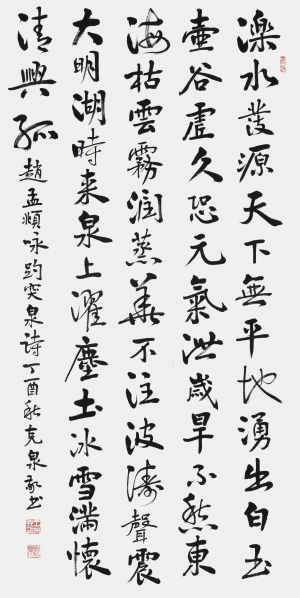 濼水發源天下無平地湧出白玉
壺谷虛久恐元氣洩歲旱不愁東
海枯雲霧潤蒸華不注波濤聲震
大明湖時来泉上濯塵土冰雪滿懷
清興孤 趙孟頫咏趵突泉詩丁酉秋克泉敬书